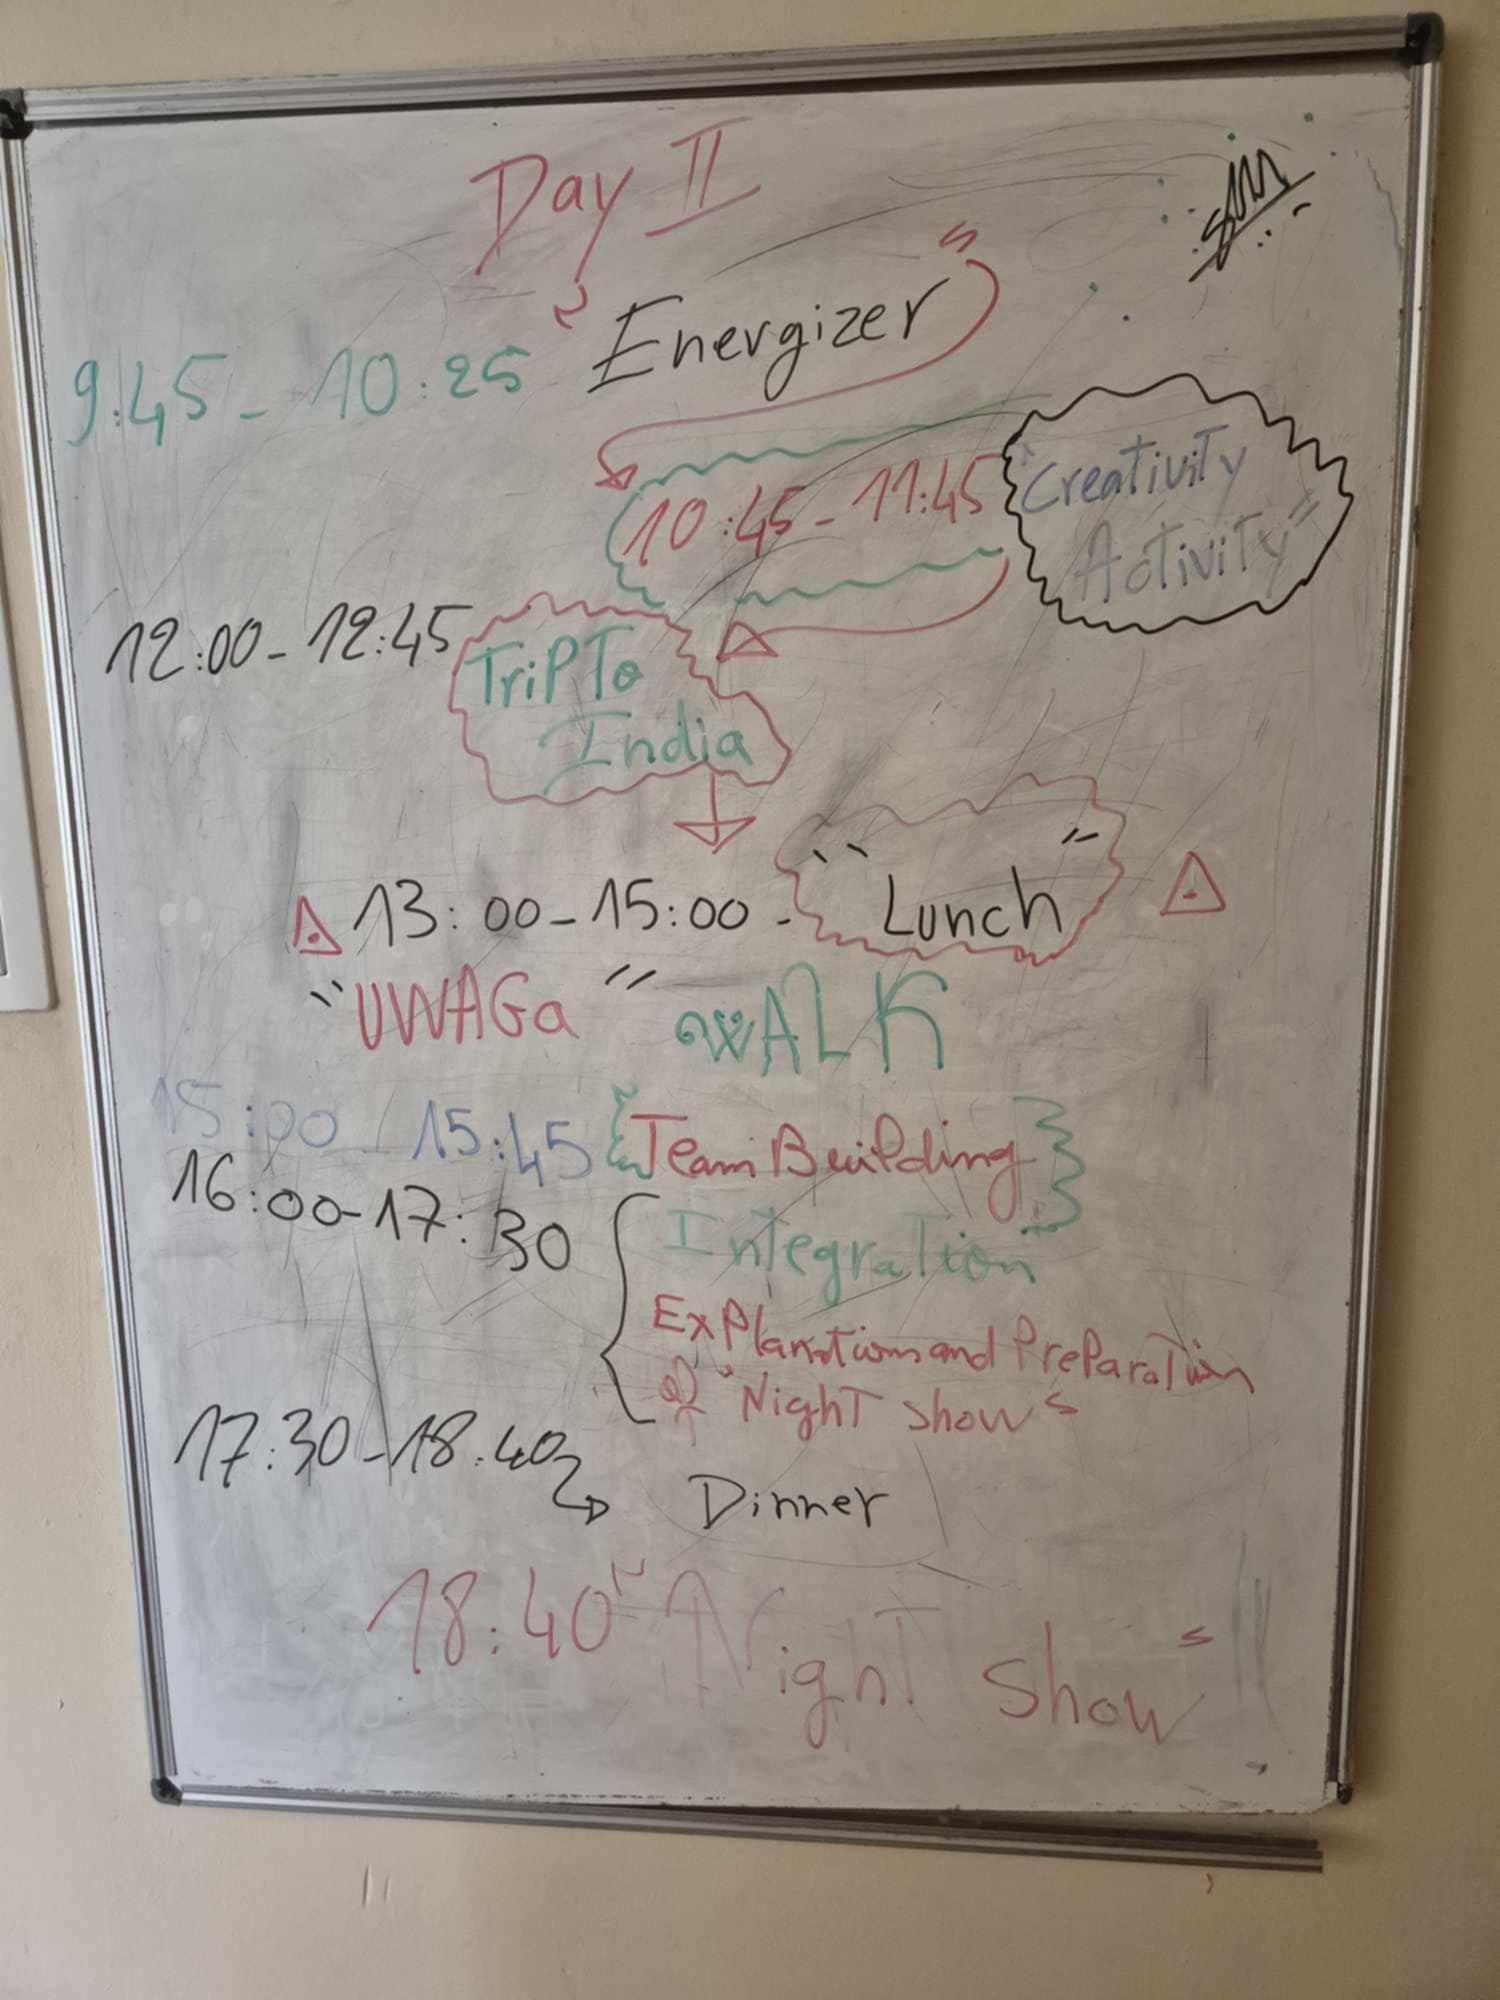 Day II
9:45 - 10:25 Energizer
10:45 - 11:45 "Creativity
Activity"
12:00 - 12:45 Trip To
India
13:00 - 15:00 - "Lunch"
"UWAGa" WALK
15:00 - 15:45 Team Building
16:00 - 17:30 Integration
Explanation and Preparation
of "Night show"
17:30 - 18:40 Dinner
18:40 "Night Show"